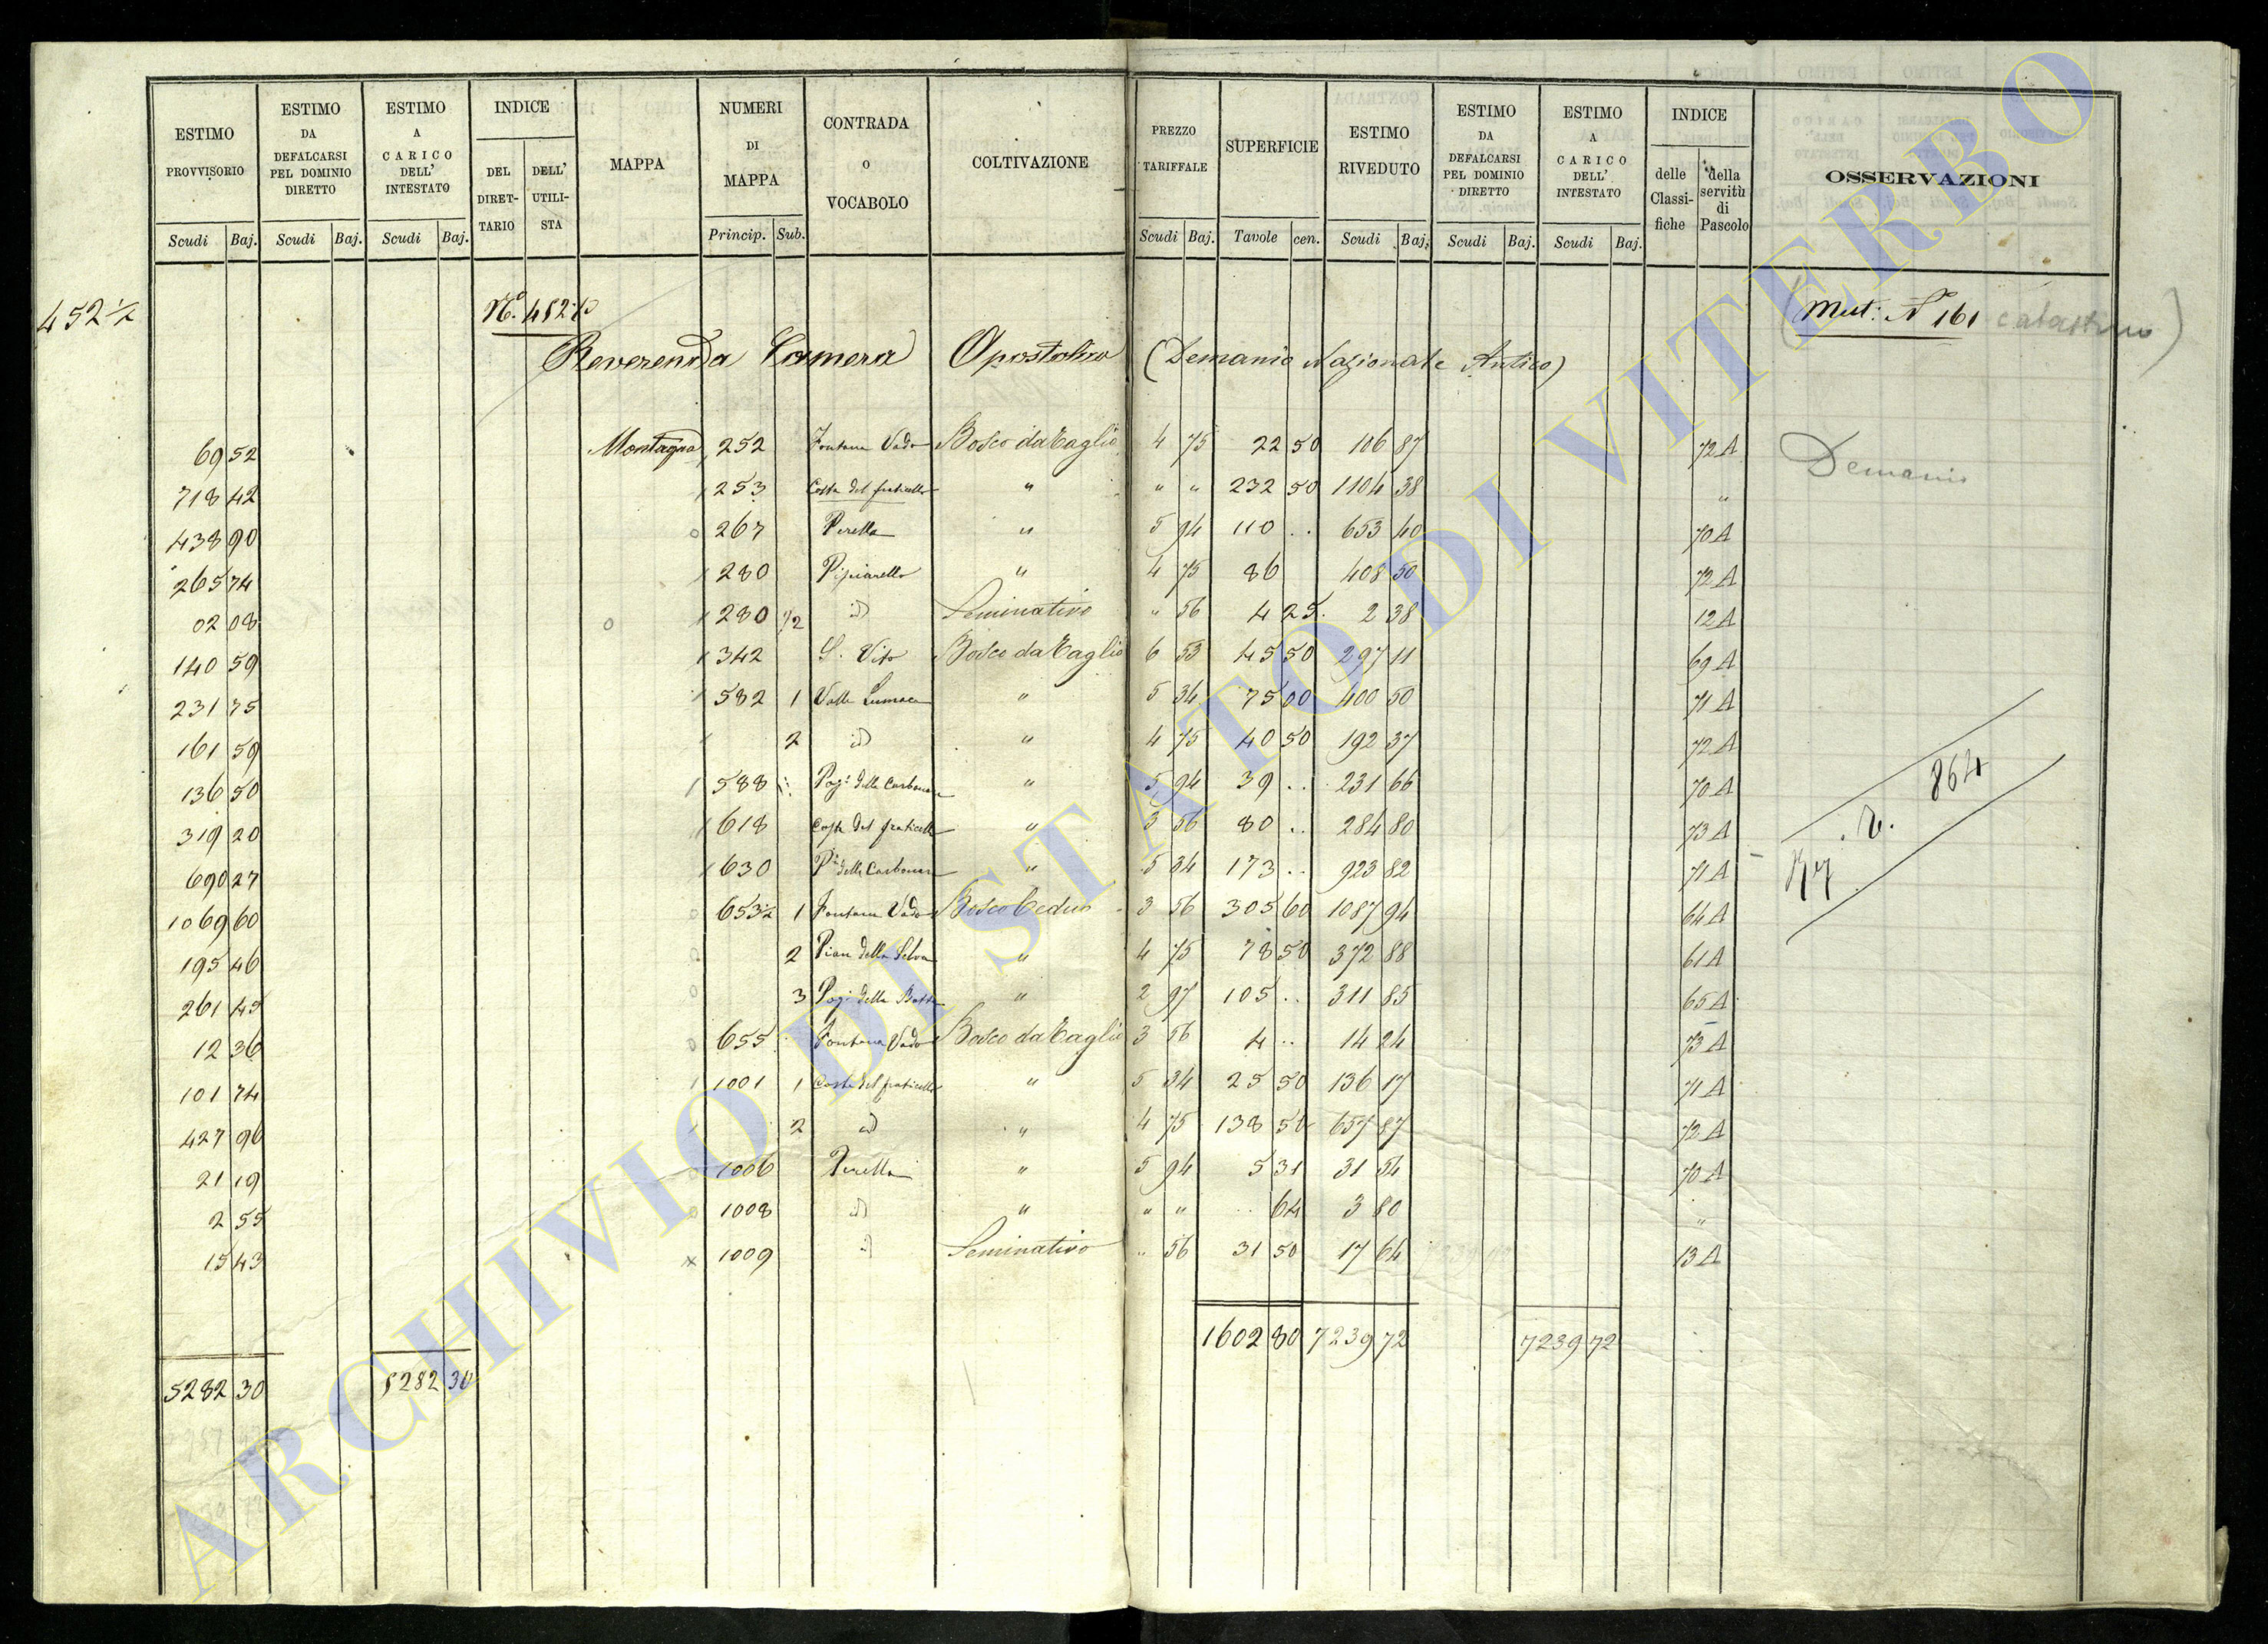 ESTIMO PROVVISORIO | ESTIMO DA DEFALCARSI PEL DOMINIO DIRETTO | ESTIMO A CARICO DELL' INTESTATO | INDICE | MAPPA | NUMERI DI MAPPA | CONTRADA O VOCABOLO | COLTIVAZIONE | PREZZO TARIFFALE | SUPERFICIE | ESTIMO RIVEDUTO | ESTIMO DA DEFALCARSI PEL DOMINIO DIRETTO | ESTIMO A CARICO DELL' INTESTATO | INDICE | OSSERVAZIONI
DEL DIRETTARIO | DELL' UTILISTA | delle Classifiche | della servitù di Pascolo
Scudi | Baj. | Scudi | Baj. | Scudi | Baj. | Princip. | Sub. | Scudi | Baj. | Tavole | cen. | Scudi | Baj. | Scudi | Baj. | Scudi | Baj.
452 1/2 | N.º 452 1/2 | (Mut: N 161 catastino)
Reverenda Camera Apostolica (Demanio Nazionale Antico)
69 52 | Montagna | 252 | Fontana Vado | Bosco da Taglio | 4 75 | 22 50 | 106 87 | 72 A | Demanio
718 42 | 253 | Costa del fraticello | " | " " | 232 50 | 1104 38 | "
438 90 | 267 | Perella | " | 5 94 | 110 .. | 653 40 | 70 A
265 74 | 280 | " | 4 75 | 86 | 408 50 | 72 A
02 08 | 280 1/2 | id | Seminativo | " 56 | 4 25 | 2 38 | 12 A
140 59 | 342 | S. Vito | Bosco da Taglio | 6 53 | 45 50 | 297 11 | 69 A
231 75 | 582 | 1 | Valle Lumaca | " | 5 34 | 75 00 | 400 50 | 71 A
161 59 | 2 | id | " | 4 75 | 40 50 | 192 37 | 72 A
136 50 | 588 | Pog. delle Carbonare | " | 5 94 | 39 .. | 231 66 | 70 A | 864
319 20 | 618 | Costa del fraticello | " | 3 56 | 80 .. | 284 80 | 73 A
690 27 | 630 | delle Carbonare | " | 5 34 | 173 .. | 923 82 | 71 A
1069 60 | 653 1/2 | 1 | Fontana Vado | Bosco Ceduo | 3 56 | 305 60 | 1087 94 | 64 A
195 46 | 2 | Pian della Selva | " | 4 75 | 78 50 | 372 88 | 61 A
261 45 | 3 | Pog. della | " | 2 97 | 105 .. | 311 85 | 65 A
12 36 | 655 | Fontana Vado | Bosco da Taglio | 3 56 | 4 .. | 14 24 | 73 A
101 74 | 1001 | 1 | Costa del fraticello | " | 5 34 | 25 50 | 136 17 | 71 A
427 96 | 2 | id | " | 4 75 | 138 50 | 657 87 | 72 A
21 19 | 1006 | Perella | " | 5 94 | 5 31 | 31 54 | 70 A
2 55 | 1008 | id | " | " " | .. 64 | 3 80 | "
15 43 | 1009 | id | Seminativo | " 56 | 31 50 | 17 64 | 13 A
1602 80 | 7239 72 | 7239 72
5282 30 | 5282 30
ARCHIVIO DI STATO DI VITERBO